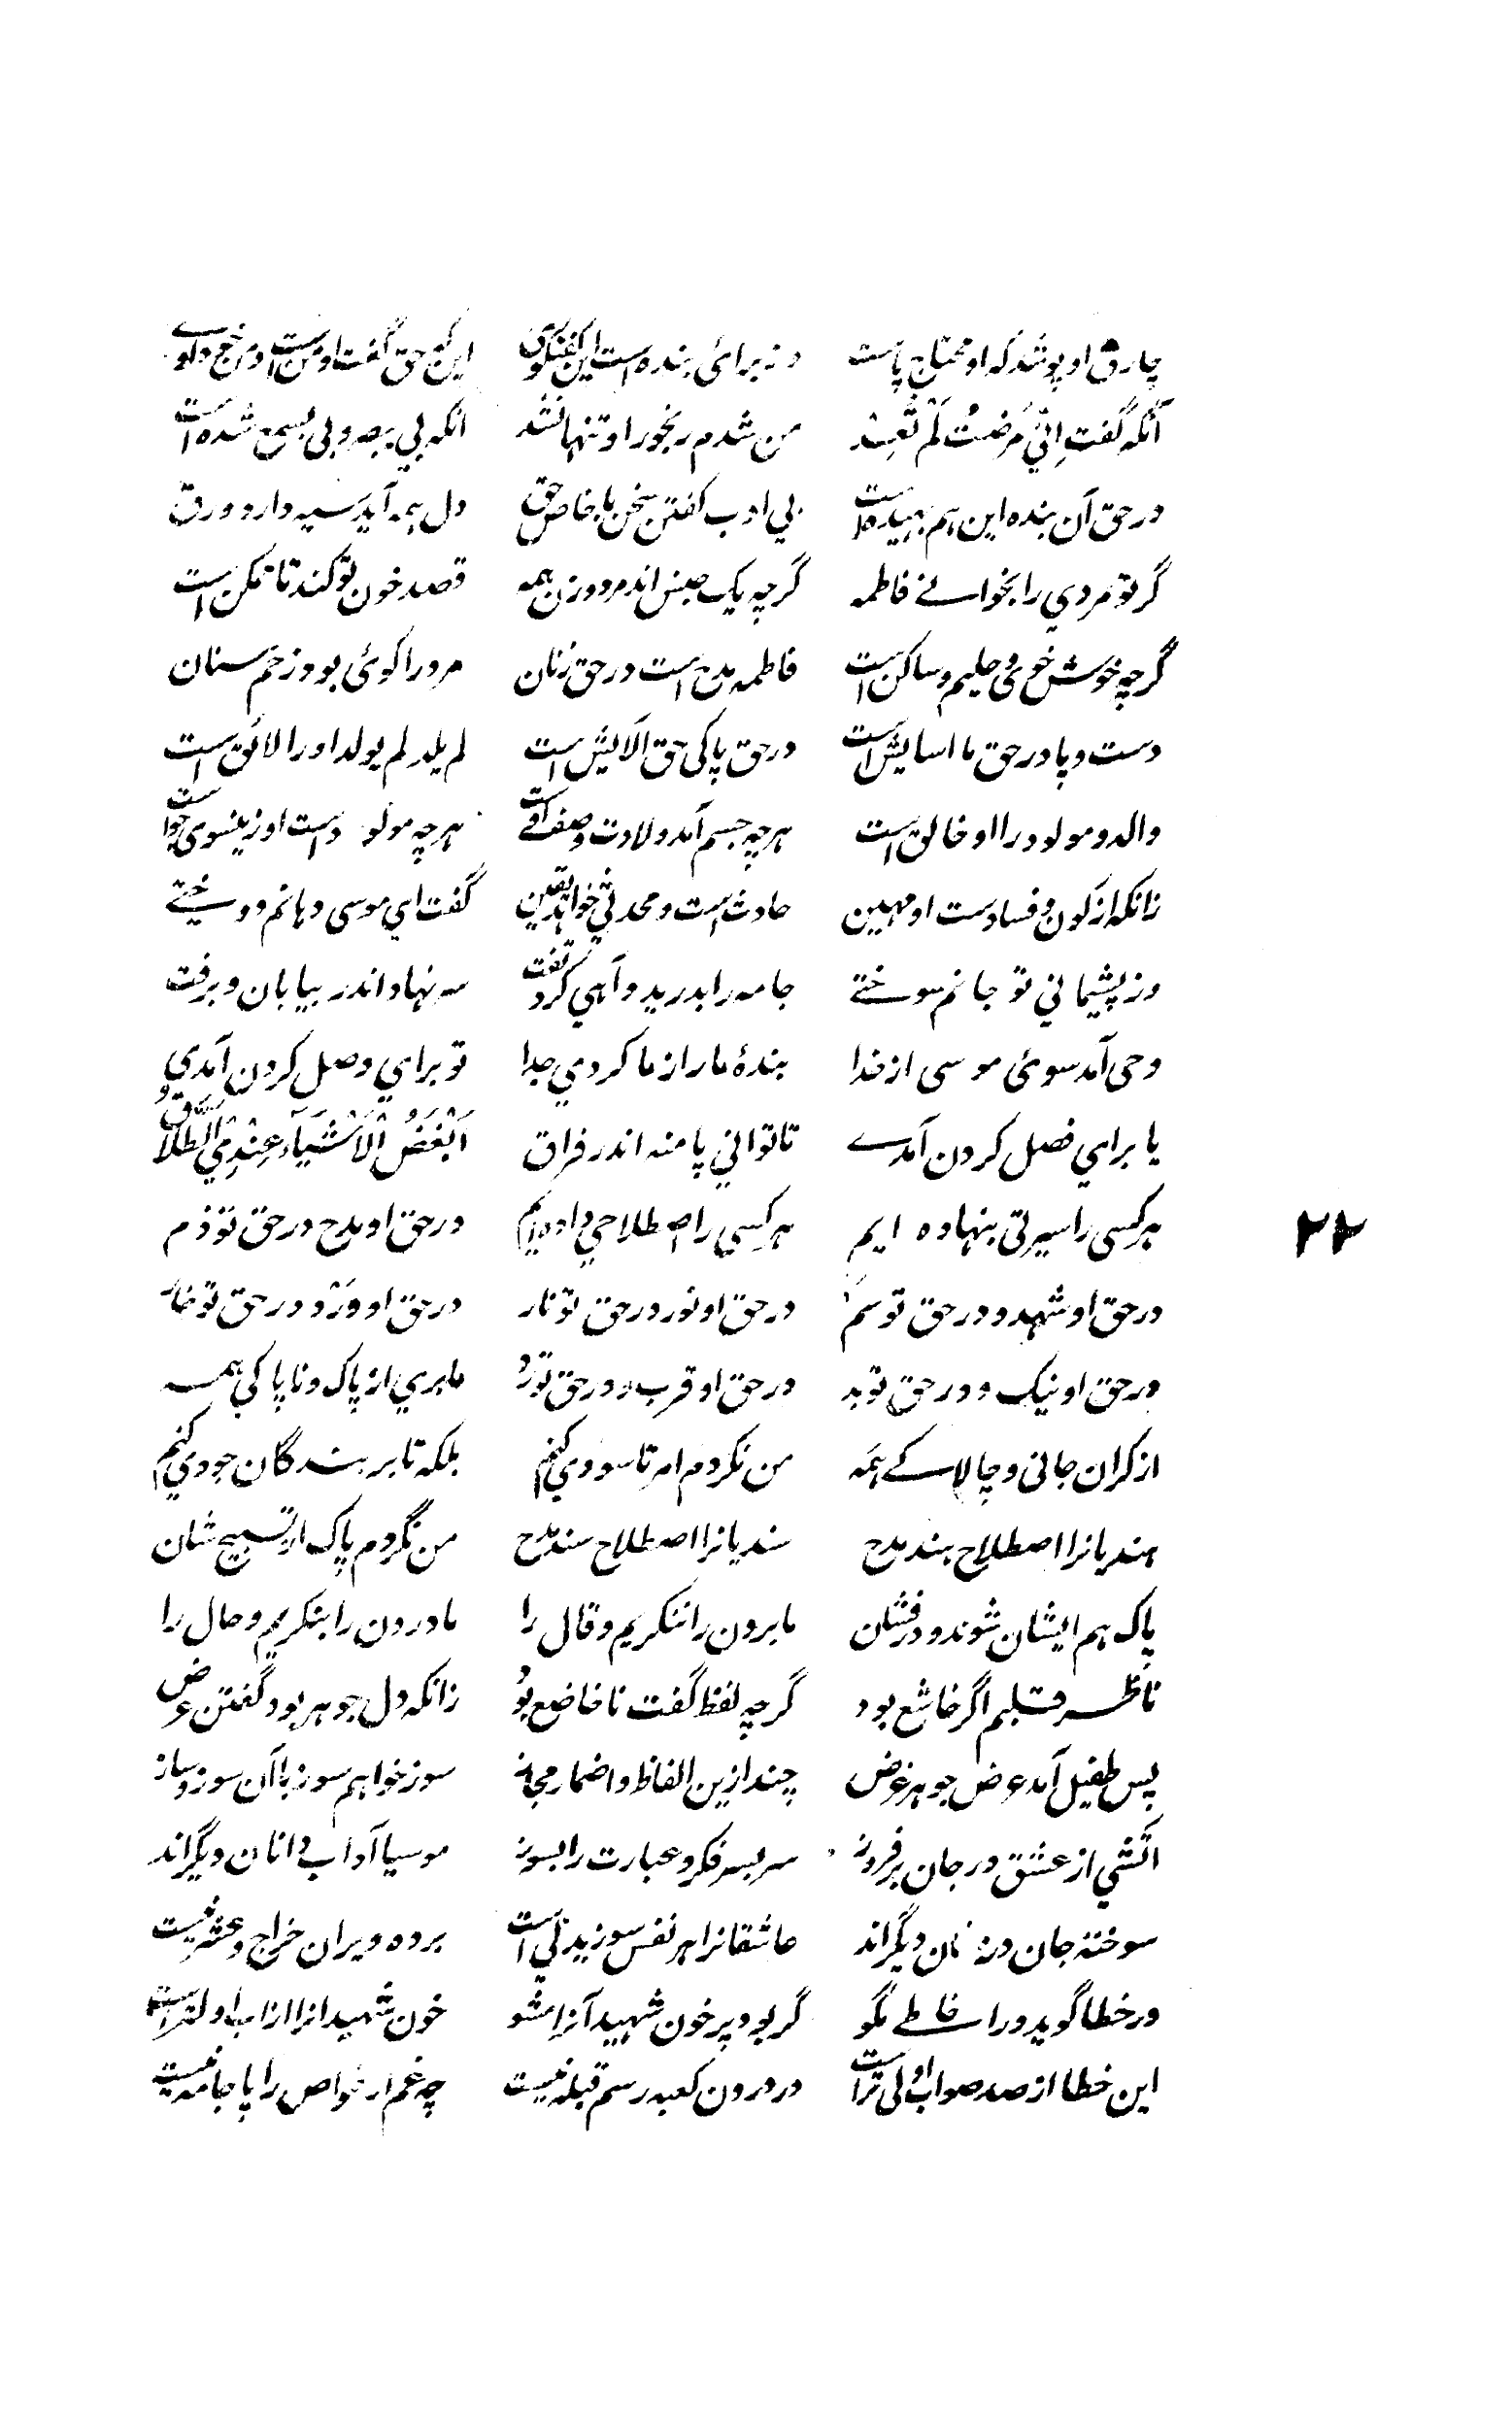 چارق او پوشد که او محتاج پاست ور برای بنده است این گفتگوی اینکه حق گفت او من است و من خود اوی
آنکه گفت اِنّی مَرِضتُ لَم تَعُد من شدم رنجور او تنها نشد انکه بی یبصر و بی یسمع شده است
در حق آن بنده این هم بیهده است بی ادب گفتن سخن با خاص حق دل بمیراند سیه دارد ورق
گر تو مردی را بخوانی فاطمه گرچه یک جنس اند مرد و زن همه قصد خون تو کند تا ممکن است
گرچه خوش خوی و حلیم و ساکن است فاطمه مدح است در حق زنان مرد را گوئی بود زخم سنان
دست و پا در حق ما اسایش است در حق پاکی حق آلایش است لم یلد لم یولد او را لائق است
والد و مولود را او خالق است هرچه جسم آمد ولادت وصف اوست هرچه مولود است او زینسوی جو است
زانکه از کون و فساد ست او مهین حادث است و محدثی خواهد یقین گفت ای موسی دهانم دوختی
وز پشیمانی تو جانم سوختی جامه را بدرید و آهی کرد تفت سر نهاد اندر بیابان و برفت
وحی آمد سوئ موسی از خدا بندۀ ما را ز ما کردی جدا تو برای وصل کردن آمدی
یا برای فصل کردن آمدے تا توانی پا منه اندر فراق اَبْغَضُ الْاَشْیَآءِ عِنْدِی الطَّلَاقُ
هر کسی را سیرتی بنهاده ایم هر کسی را اصطلاحی داده ایم در حق او مدح در حق تو ذم
۲۲
در حق او شهد و در حق تو سم در حق او نور در حق تو نار در حق او ورد و در حق تو خار
در حق او نیک و در حق تو بد در حق او قرب و در حق تو رد ما بری از پاک و ناپاکی همه
از گران جانی و چالاکے همه من نکردم امر تا سودی کنم بلکه تا بر بندگان جودی کنم
هندیانرا اصطلاح هند مدح سندیانرا اصطلاح سند مدح من نگردم پاک از تسبیح شان
پاک هم ایشان شوند و درفشان ما برون را ننگریم و قال را ما درون را بنگریم و حال را
ناظر قلبیم اگر خاشع بود گرچه لفظ گفت ناخاضع بود زانکه دل جوهر بود گفتن عرض
پس طفیل آمد عرض جوهر غرض چند ازین الفاظ و اضمار مجاز سوز خواهم سوز با آن سوز و ساز
آتشی از عشق در جان بر فروز سر بسر فکر و عبارت را بسوز موسیا آداب دانان دیگراند
سوخته جان و روانان دیگراند عاشقانرا هر نفس سوزیدنی است بر ده ویران خراج و عشر نیست
ور خطا گوید ورا خاطے مگو گر بود پر خون شهید آنرا مشو خون شهیدانرا از آب اولیتر است
این خطا از صد صواب اولی تر است در درون کعبه رسم قبله نیست چه غم ار غواص را پاجامه نیست